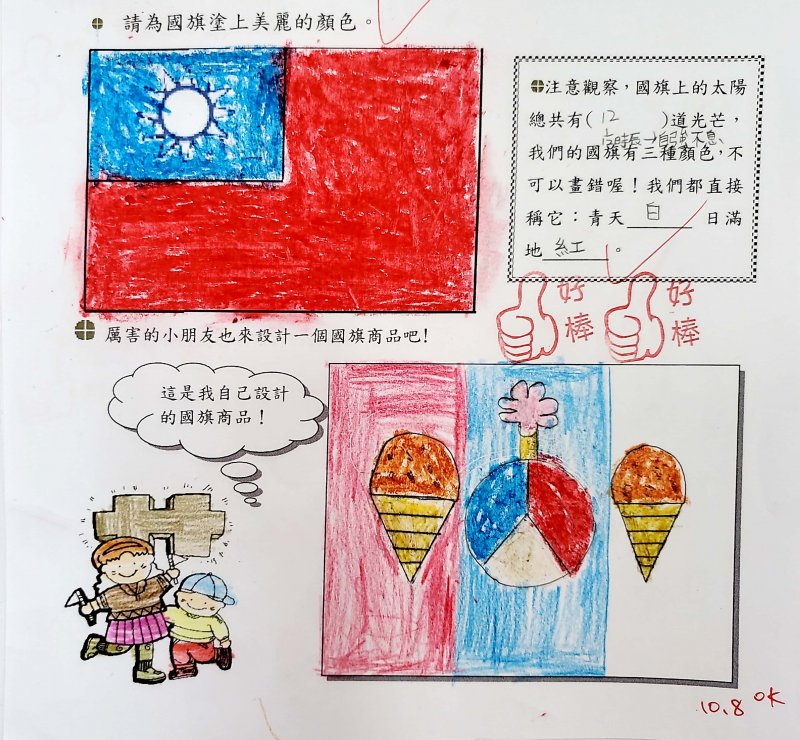 請為國旗塗上美麗的顏色。
注意觀察，國旗上的太陽
總共有( 12 )道光芒，
六時辰→自強不息
我們的國旗有三種顏色，不
可以畫錯喔！我們都直接
稱它：青天 白 日滿
地 紅 。
好棒 好棒
厲害的小朋友也來設計一個國旗商品吧！
這是我自己設計
的國旗商品！
10.8 OK